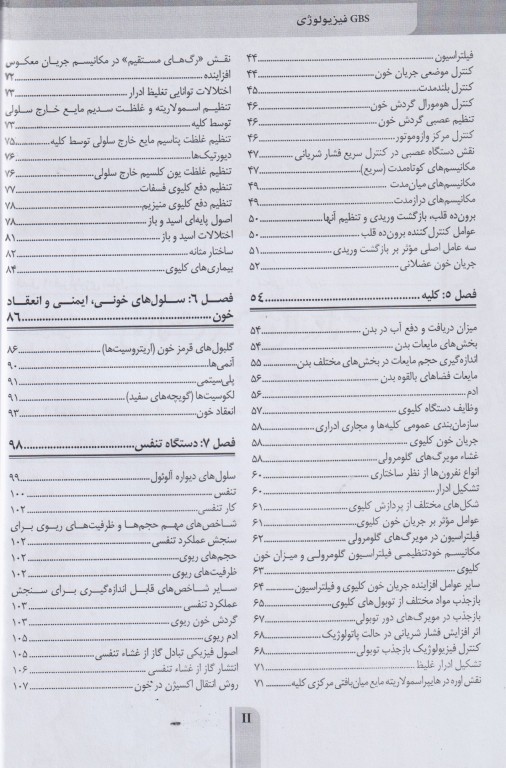 GBS فیزیولوژی
فیلتراسیون ۴۴
کنترل موضعی جریان خون ۴۴
کنترل بلندمدت ۴۵
کنترل هومورال گردش خون ۴۶
تنظیم عصبی گردش خون ۴۶
کنترل مرکز وازوموتور ۴۶
نقش دستگاه عصبی در کنترل سریع فشار شریانی ۴۷
مکانیسم‌های کوتاه‌مدت (سریع) ۴۷
مکانیسم‌های میان‌مدت ۴۹
مکانیسم‌های درازمدت ۴۹
برون‌ده قلب، بازگشت وریدی و تنظیم آنها ۵۰
عوامل کنترل‌کننده برون‌ده قلب ۵۰
سه عامل اصلی مؤثر بر بازگشت وریدی ۵۱
جریان خون عضلانی ۵۲
فصل ۵: کلیه ۵۴
میزان دریافت و دفع آب در بدن ۵۴
بخش‌های مایعات بدن ۵۴
اندازه‌گیری حجم مایعات در بخش‌های مختلف بدن ۵۵
مایعات فضاهای بالقوه بدن ۵۶
ادم ۵۶
وظایف دستگاه کلیوی ۵۷
سازمان‌بندی عمومی کلیه‌ها و مجاری ادراری ۵۸
جریان خون کلیوی ۵۸
غشاء مویرگ‌های گلومرولی ۵۸
انواع نفرون‌ها از نظر ساختاری ۶۰
تشکیل ادرار ۶۰
شکل‌های مختلف از پردازش کلیوی ۶۱
عوامل مؤثر بر جریان خون کلیوی ۶۱
فیلتراسیون در مویرگ‌های گلومرولی ۶۲
مکانیسم خودتنظیمی فیلتراسیون گلومرولی و میزان خون
کلیوی ۶۳
سایر عوامل افزاینده جریان خون کلیوی و فیلتراسیون ۶۴
بازجذب مواد مختلف از توبول‌های کلیوی ۶۵
بازجذب در مویرگ‌های دور توبولی ۶۷
اثر افزایش فشار شریانی در حالت پاتولوژیک ۶۸
کنترل فیزیولوژیک بازجذب توبولی ۶۸
تشکیل ادرار غلیظ ۷۱
نقش اوره در هایپراسمولاریته مایع میان‌بافتی مرکزی کلیه ۷۱
نقش «رگ‌های مستقیم» در مکانیسم جریان معکوس
افزاینده ۷۲
اختلالات توانایی تغلیظ ادرار ۷۳
تنظیم اسمولاریته و غلظت سدیم مایع خارج سلولی
توسط کلیه ۷۳
تنظیم غلظت پتاسیم مایع خارج سلولی توسط کلیه ۷۵
دیورتیک‌ها ۷۶
تنظیم غلظت یون کلسیم خارج سلولی ۷۶
تنظیم دفع کلیوی فسفات ۷۷
تنظیم دفع کلیوی منیزیم ۷۸
اصول پایه‌ای اسید و باز ۷۸
اختلالات اسید و باز ۸۱
ساختار مثانه ۸۲
بیماری‌های کلیوی ۸۴
فصل ۶: سلول‌های خونی، ایمنی و انعقاد
خون ۸۶
گلبول‌های قرمز خون (اریتروسیت‌ها) ۸۶
آنمی‌ها ۹۰
پلی‌سیتمی ۹۱
لکوسیت‌ها (گویچه‌های سفید) ۹۱
انعقاد خون ۹۳
فصل ۷: دستگاه تنفس ۹۸
سلول‌های دیواره آلوئول ۹۹
تنفس ۱۰۰
کار تنفسی ۱۰۲
شاخص‌های مهم حجم‌ها و ظرفیت‌های ریوی برای
سنجش عملکرد تنفسی ۱۰۲
حجم‌های ریوی ۱۰۲
ظرفیت‌های ریوی ۱۰۲
سایر شاخص‌های قابل اندازه‌گیری برای سنجش
عملکرد تنفسی ۱۰۳
گردش خون ریوی ۱۰۳
ادم ریوی ۱۰۵
اصول فیزیکی تبادل گاز از غشاء تنفسی ۱۰۵
انتشار گاز از غشاء تنفسی ۱۰۶
روش انتقال اکسیژن در خون ۱۰۷
II